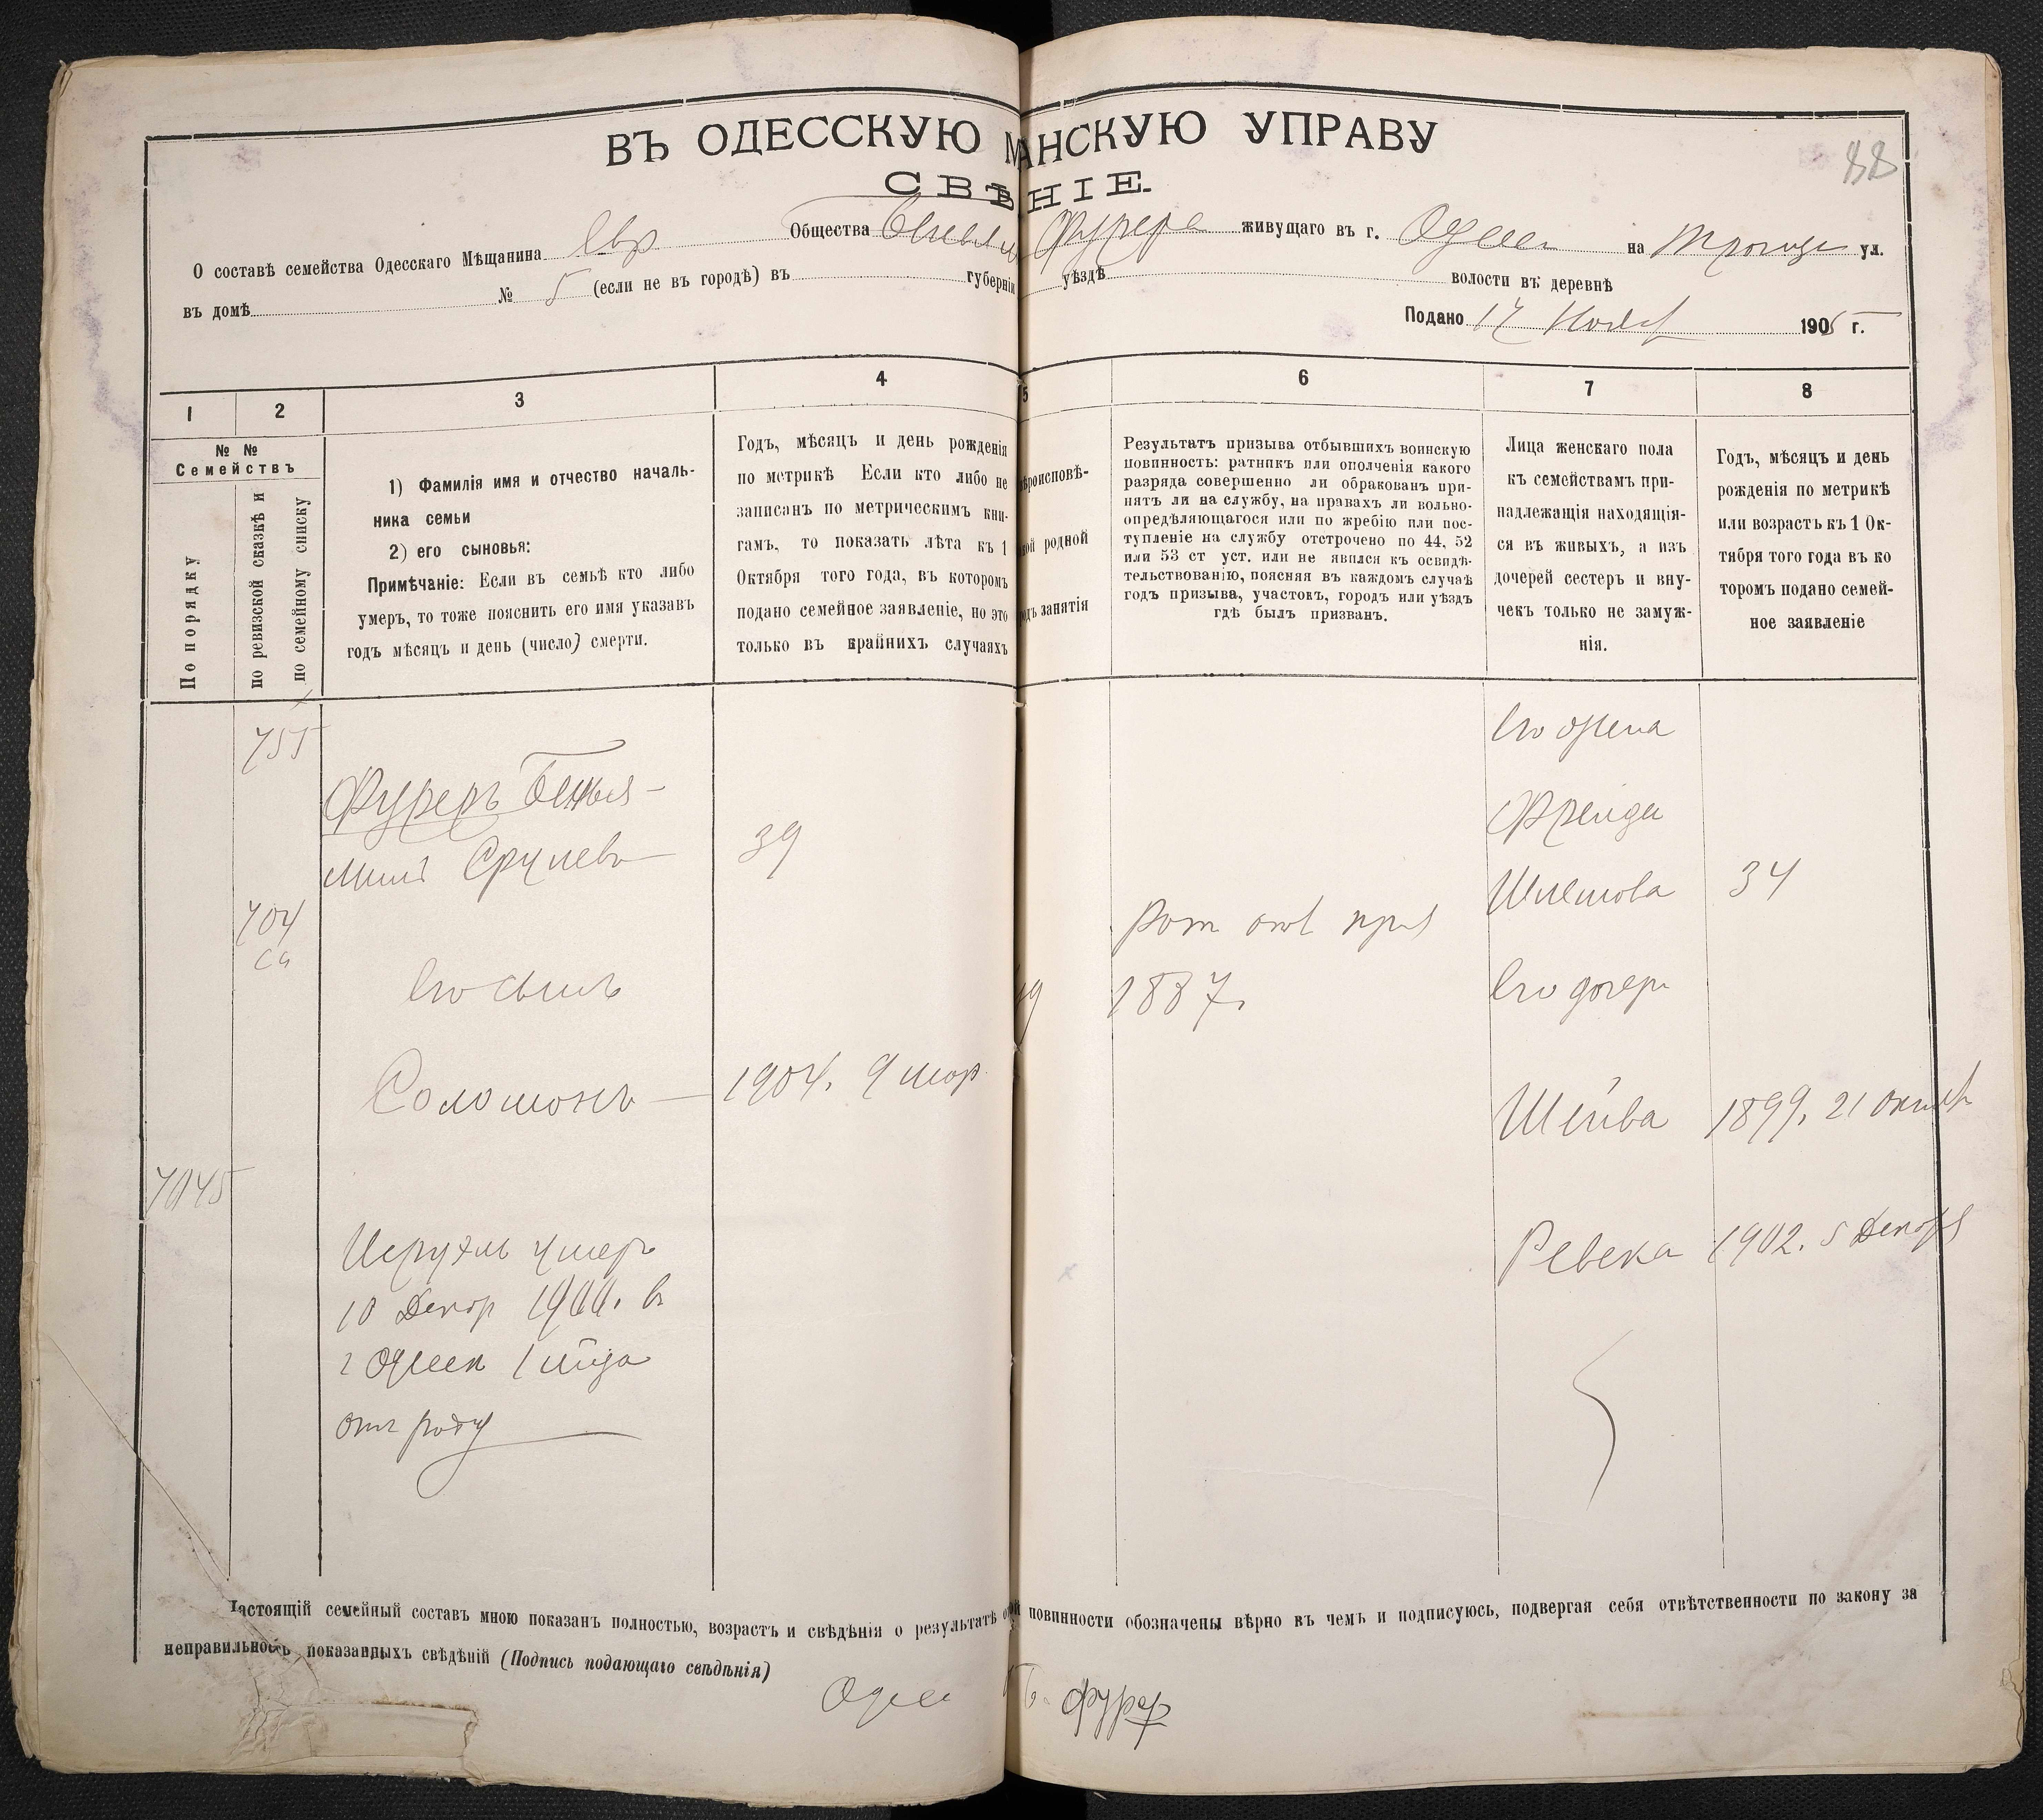 88
ВЪ ОДЕССКУЮ М АНСКУЮ УПРАВУ
СВѢ НІЕ.
О составѣ семейства Одесскаго Мѣщанина Евр Общества Беньями Фурера живущаго въ г. Одессе на Троицк ул.
въ домѣ № 5 (если не въ городѣ) въ губерніи уѣздѣ волости въ деревнѣ
Подано 17 Нояб 1905 г.
1
2
3
4
5
6
7
8
№ №
Семействъ
По порядку
по ревизской сказкѣ и
по семейному списку
1) Фамилія имя и отчество началь-
ника семьи
2) его сыновья:
Примѣчаніе: Если въ семьѣ кто либо
умеръ, то тоже пояснить его имя указавъ
годъ мѣсяцъ и день (число) смерти.
Годъ, мѣсяцъ и день рожденія
по метрикѣ Если кто либо не
записанъ по метрическимъ кни-
гамъ, то показать лѣта къ 1
Октября того года, въ которомъ
подано семейное заявленіе, но это
только въ крайнихъ случаяхъ
ѣроисповѣ-
кой родной
одъ занятія
Результатъ призыва отбывшихъ воинскую
повинность: ратникъ или ополченія какого
разряда совершенно ли обракованъ при-
нятъ ли на службу, на правахъ ли вольно-
опредѣляющагося или по жребію или пос-
тупленіе на службу отстрочено по 44, 52
или 53 ст уст. или не явился къ освидѣ-
тельствованію, поясняя въ каждомъ случаѣ
годъ призыва, участокъ, городъ или уѣздъ
гдѣ былъ призванъ.
Лица женскаго пола
къ семействамъ при-
надлежащія находящія-
ся въ живыхъ, а изъ
дочерей сестеръ и вну-
чекъ только не замуж-
нія.
Годъ, мѣсяцъ и день
рожденія по метрикѣ
или возрастъ къ 1 Ок-
тября того года въ ко
торомъ подано семей-
ное заявленіе
755
Его жена
Фуреръ Бенья-
Фрейда
минъ Срулев
39
Шлемова 34
704
са
Рат опол приз
1887.
Его сынъ
Его дочери
Соломонъ 1904. 9 мар
Шейва 1899. 21 Октяб
7045
Исруэль умеръ
Ревека 1902. 5 Декаб
10 Декабр 1900. въ
г Одессе 1 года
отъ роду
Настоящій семейный составъ мною показанъ полностью, возрастъ и свѣдѣнія о результатѣ о ой повинности обозначены вѣрно въ чемъ и подписуюсь, подвергая себя отвѣтственности по закону за
неправильность показанныхъ свѣдѣній (Подпись подающаго свѣдѣнія)
Одес Б. Фурер